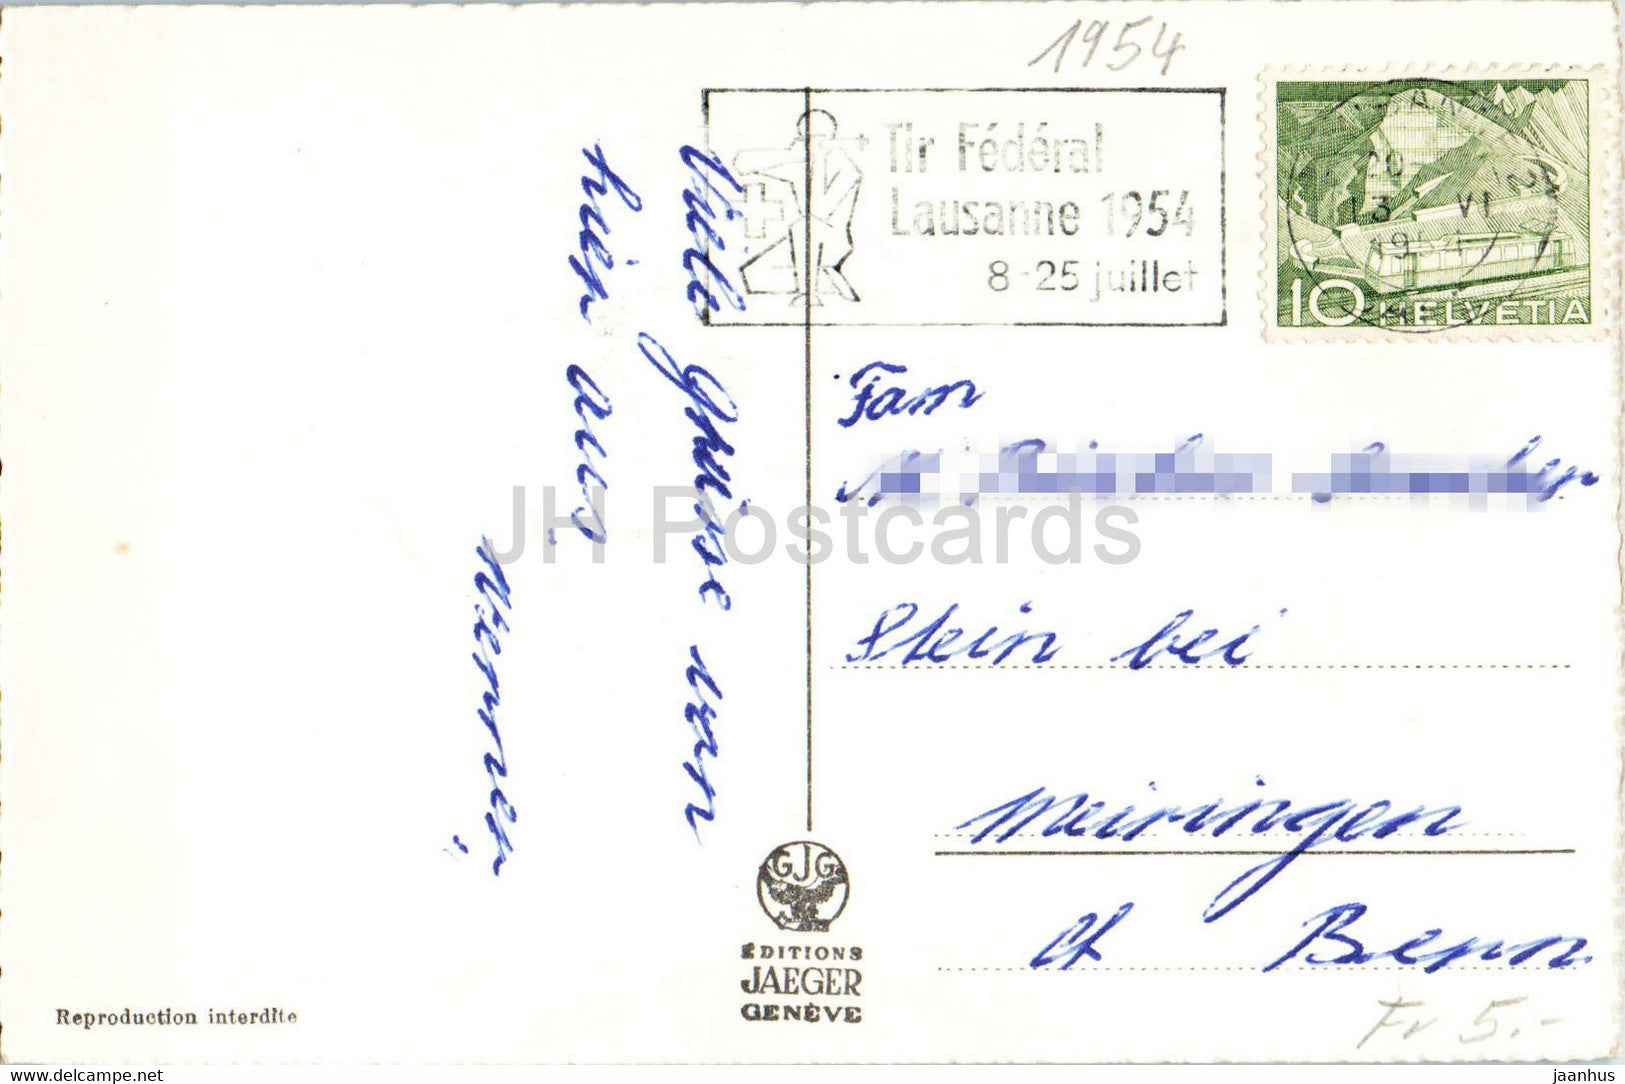 1954
Tir Fédéral
Lausanne 1954
8-25 juillet
20-
13 VI
1954
10 HELVETIA
Viele Grüsse von
hier aus,
Werner,
Fam
Stein bei
Meiringen
Kt Bern
GJG
ÉDITIONS
JAEGER
GENÈVE
Reproduction interdite
Fr 5.-
JH Postcards
www.delcampe.net
jaanhus